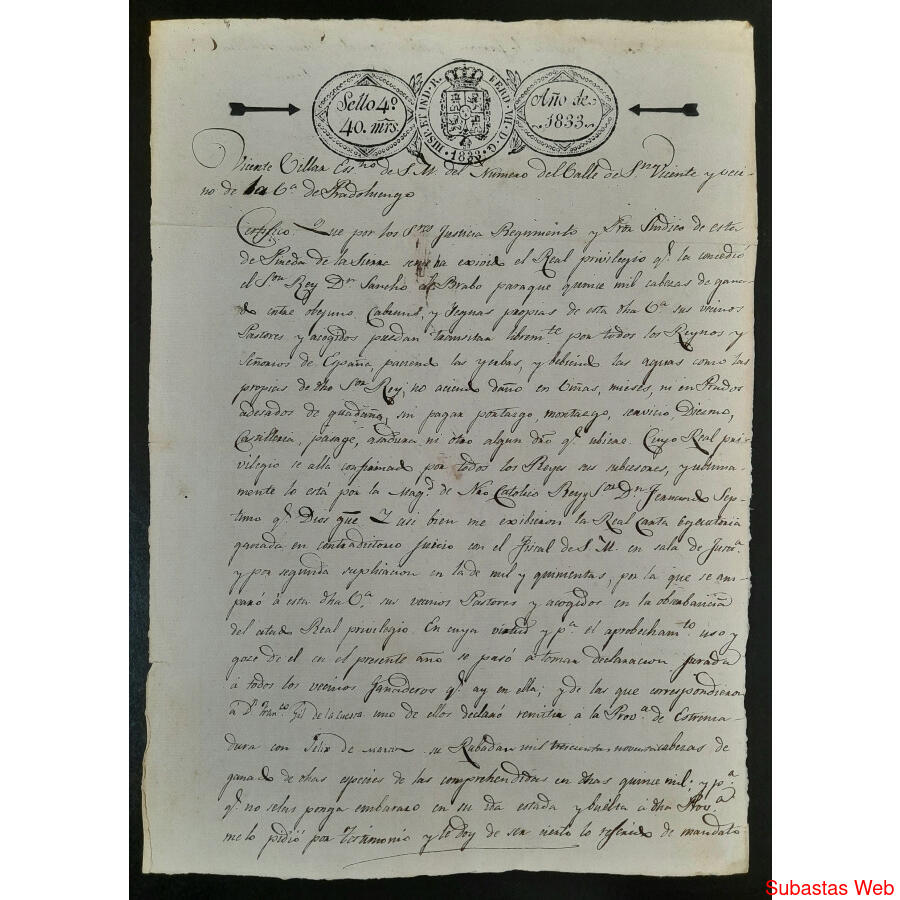 Sello 4º
40. mrs.
HISP. ET IND. R. FERD. VII. D. G. 1833
Año de
1833.
Vicente Villar Essno. de S. M. del Número del Valle de Sn. Vicente y veci-
no de la Va. de Pradoluengo
Certifico: Que por los Sres. Justicia Regimiento y Pror. Sindico de esta
de Pineda de la Sierra se me ha exivido el Real privilegio qe. la concedió
el Sor. Rey Dn. Sancho el Brabo para que quince mil cabezas de gana-
do entre obejuno, Cabruno, y Yeguas propias de esta dha Va. sus vecinos
Pastores y acogidos puedan transitar libremte. por todos los Reynos y
Señorios de España, paciendo las yerbas, y bebiendo las aguas como las
propias de dho Sor. Rey, no aciendo daño en viñas, mieses, ni en Prados
adesados de guadaña, sin pagar portazgo, montazgo, servicio Diezmo,
Castilleria, pasage, asadura ni otro algun dro qe. ubiere. Cuyo Real pri-
vilegio se alla confirmado por todos los Reyes sus subcesores, y ultima-
mente lo está por la Magd. de Nro Catolico Rey y Sor. Dn. Fernando Sep-
timo qe. Dios gue. Y asi bien me exibieron la Real Carta Egecutoria
ganada en contradictorio juicio con el Fiscal de S. M. en sala de Justa.
y por segunda suplicacion en la de mil y quinientas, por la que se am-
paró á esta dha Va. sus vecinos Pastores y acogidos en la obserbancia
del citado Real privilegio. En cuya virtud y pa. el aprobechamto. uso y
goze de el en el presente año se pasó a tomar declaracion jurada
á todos los vecinos Ganaderos qe. ay en ella; y de las que correspondieron
a Dn. Franco. Gil de la Cuesta uno de ellos declaró remitia á la Prova. de Estrema-
dura con Felix de su Rabadan mil trescientas noventa cabezas de
ganado de dhas especies de las comprehendidas en dhas quince mil; y pa.
qe. no se las ponga embarazo en su ida estada y buelta á dha Prova.
me lo pidió por testimonio y le doy de ser cierto lo referido de mandato
Subastas Web